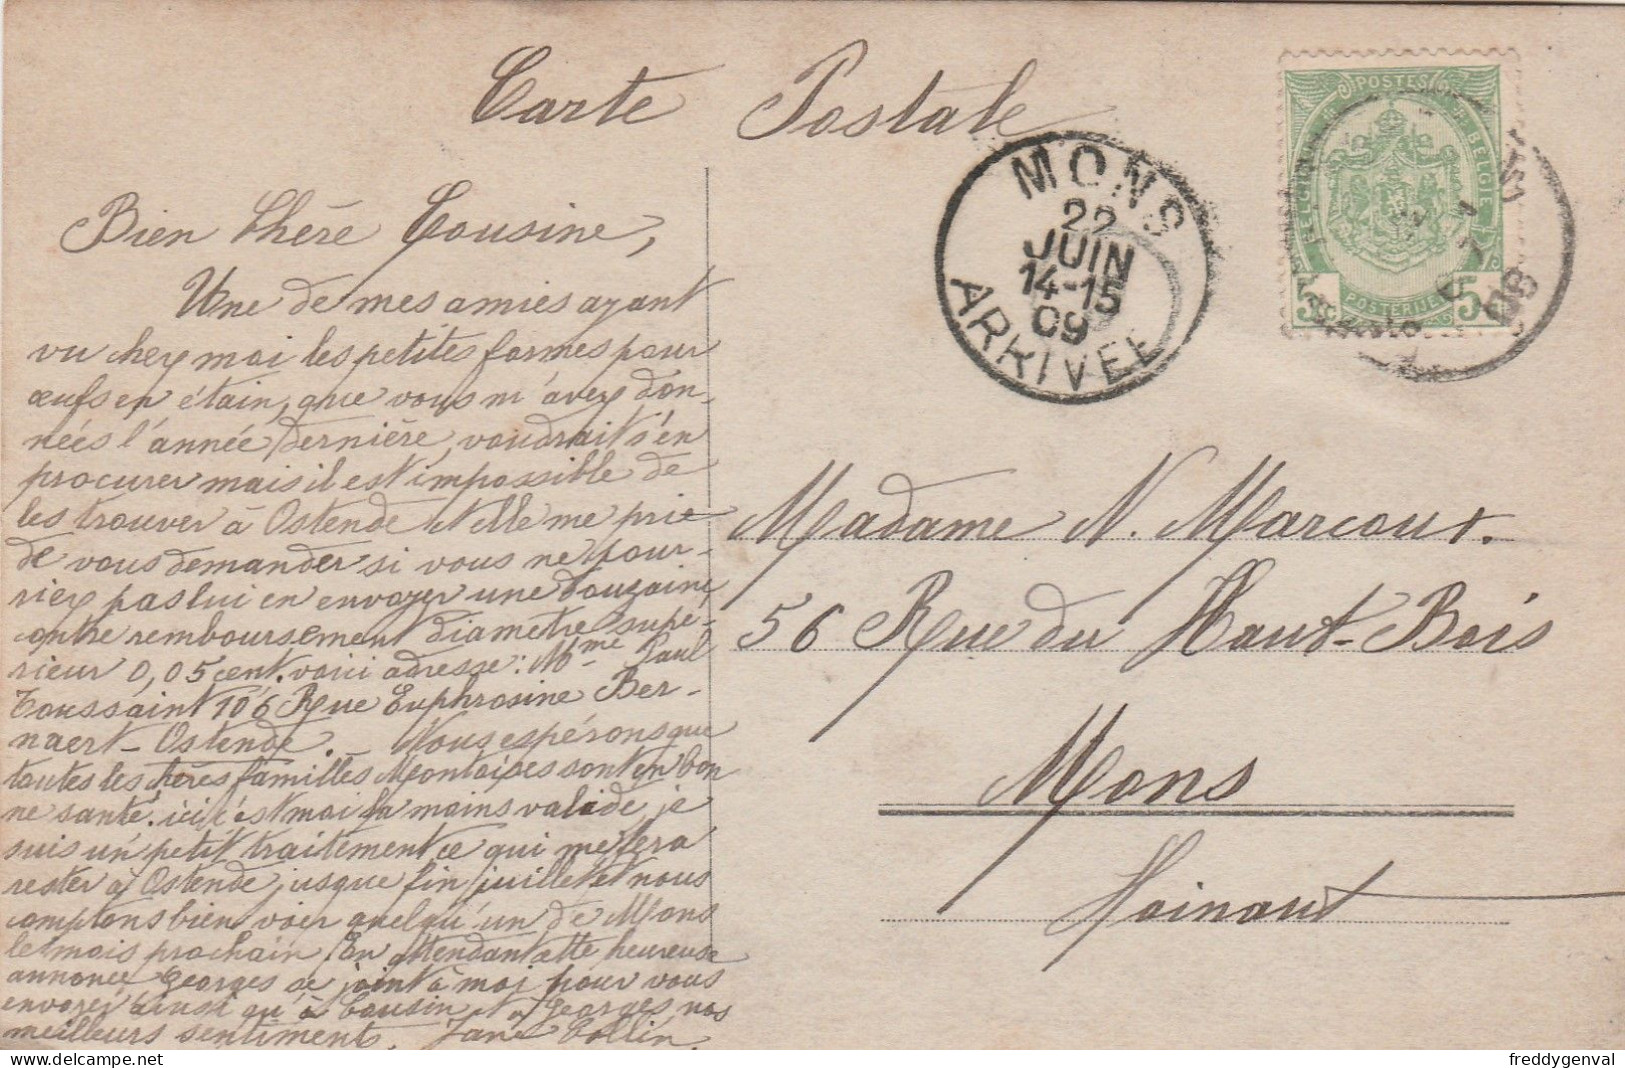 Carte Postale
MONS
22
JUIN
14-15
09
ARRIVEE
POSTES
5c
POSTERIJEN
5c
Bien Chère Cousine,
Une de mes amies ayant
vu chez moi les petites formes pour
œufs en étain, que vous m'avez don-
nées l'année dernière, voudrait s'en
procurer mais il est impossible de
les trouver à Ostende et elle me prie
de vous demander si vous ne pour-
riez pas lui en envoyer une douzaine
contre remboursement diamètre supé-
rieur 0,05 cent. voici adresse: Mme Paul
Toussaint 106 Rue Euphrosine Ber-
naert - Ostende. - Nous espérons que
toutes les chères familles Montoises sont en bon
ne santé. ici c'est moi la moins valide, je
suis un petit traitement ce qui me fera
rester à Ostende jusque fin juillet et nous
comptons bien voir quelqu'un de Mons
le mois prochain. En attendant cette heureuse
annonce Georges se joint à moi pour vous
envoyer ainsi qu'à Cousin et Georges nos
meilleurs sentiment. Jane Collin.
Madame N. Marcoux.
56 Rue du Haut-Bois
Mons
Hainaut
freddygenval
Delcampe.net